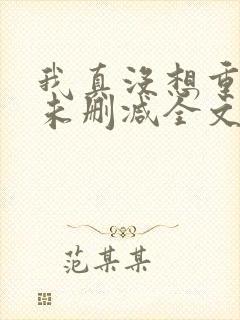 我真没想重
未删减全文
范某某